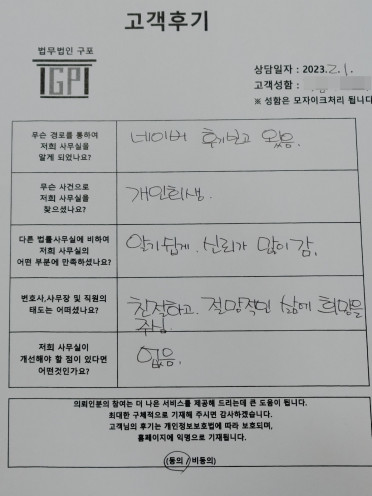 고객후기
법무법인 구포
GP
상담일자 : 2023.2.1.
고객성함 :
※ 성함은 모자이크처리 됩니다
무슨 경로를 통하여
저희 사무실을
알게 되었나요?
네이버 후기보고 왔음.
무슨 사건으로
저희 사무실을
찾으셨나요?
개인회생.
다른 법률사무실에 비하여
저희 사무실의
어떤 부분에 만족하셨나요?
알기쉽게. 신뢰가 많이 감.
변호사,사무장 및 직원의
태도는 어떠셨나요?
친절하고. 절망적인 삶에 희망을
주심.
저희 사무실이
개선해야 할 점이 있다면
어떤것인가요?
없음.
의뢰인분의 참여는 더 나은 서비스를 제공해 드리는데 큰 도움이 됩니다.
최대한 구체적으로 기재해 주시면 감사하겠습니다.
고객님의 후기는 개인정보보호법에 따라 보호되며,
홈페이지에 익명으로 기재됩니다.
(동의/비동의)